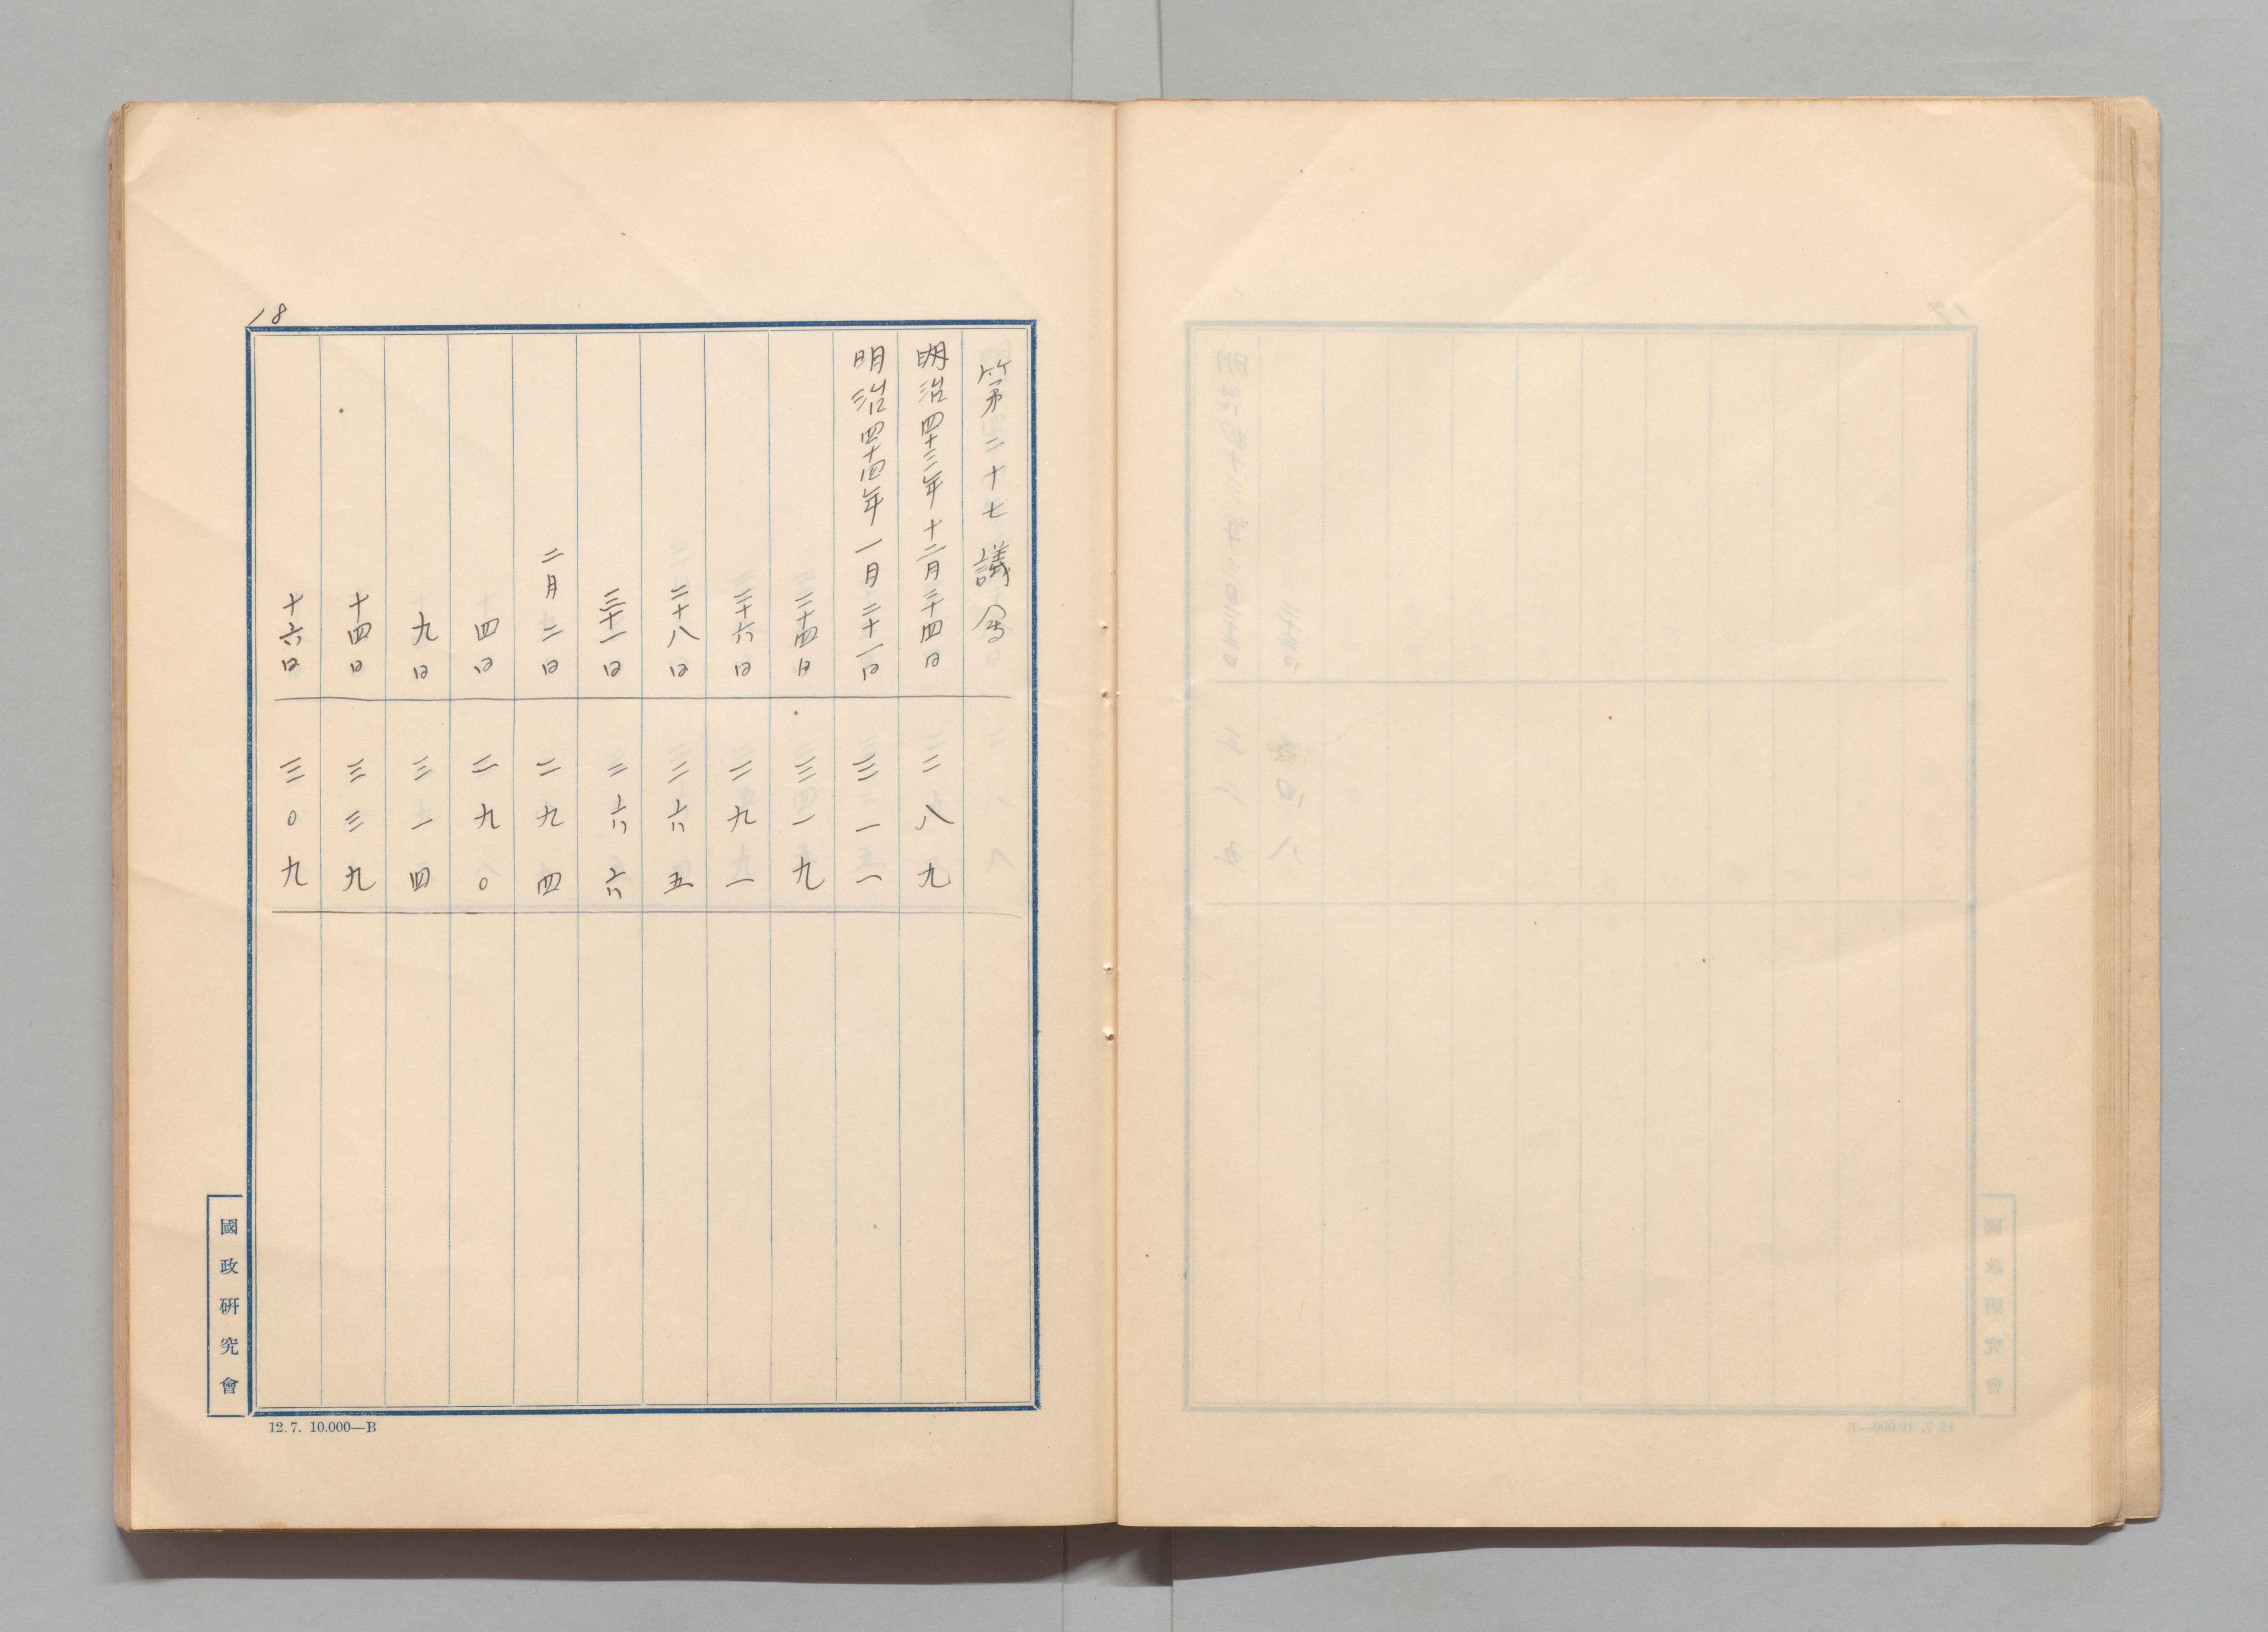 18
第二十七議会
明治四十三年十二月二十四日 二八九
明治四十四年一月二十一日 三一一
二十四日 三一九
二十六日 二九一
二十八日 二六五
三十一日 二六六
二月二日 二九四
四日 二九〇
九日 三一四
十四日 三三九
十六日 三〇九
國政研究會
12.7. 10.000—B